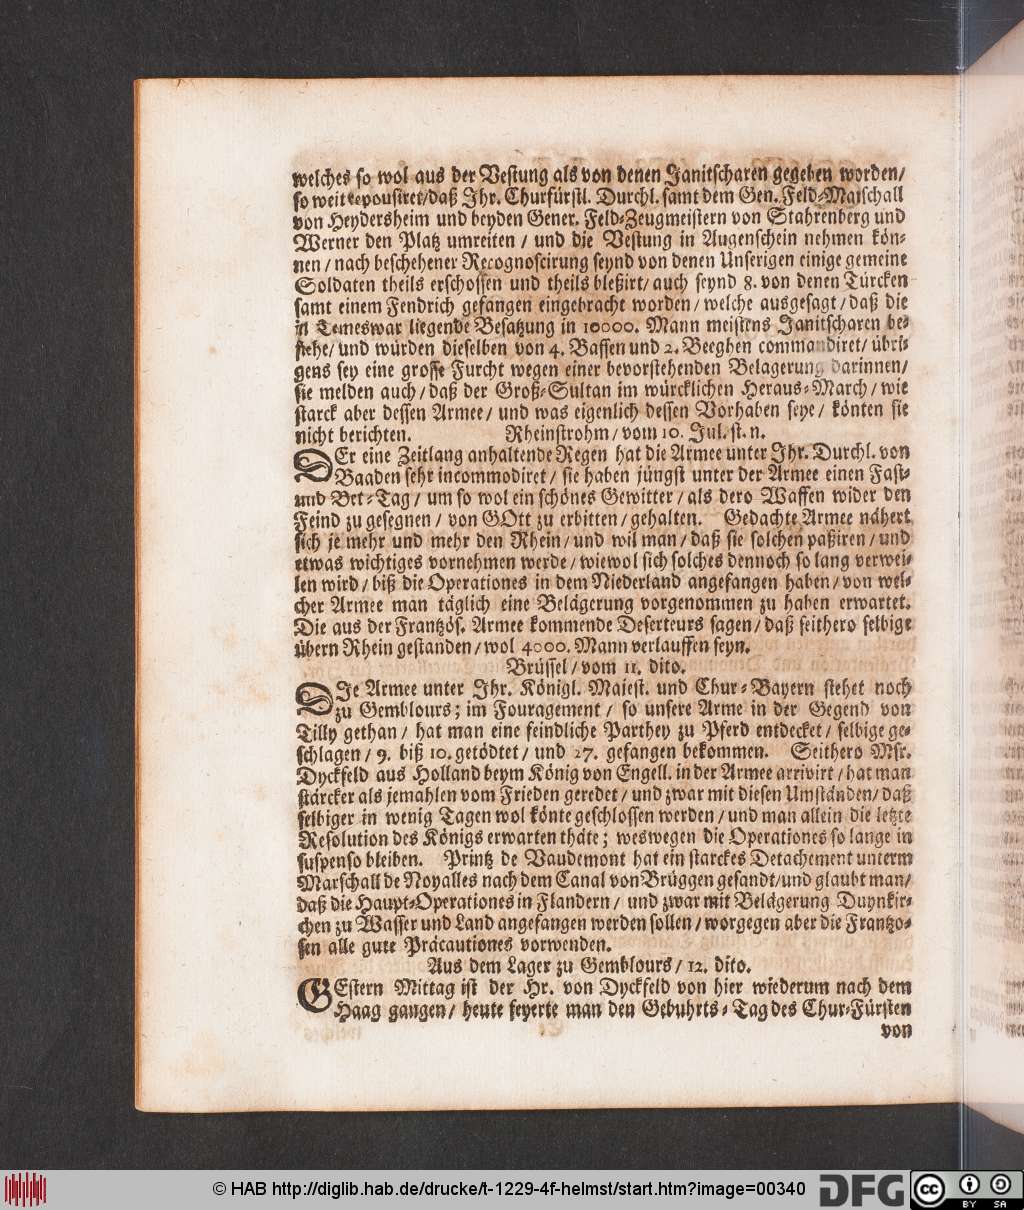 welches so wol aus der Vestung als von denen Janitscharen gegeben worden/
so weit repousiret/daß Ihr. Churfürstl. Durchl. samt dem Gen. Feld-Marschall
von Heydersheim und beyden Gener. Feld-Zeugmeistern von Stahrenberg und
Werner den Platz umreiten / und die Vestung in Augenschein nehmen kön-
nen / nach beschehener Recognoscirung seynd von denen Unserigen einige gemeine
Soldaten theils erschossen und theils bleßirt/ auch seynd 8. von denen Türcken
samt einem Fendrich gefangen eingebracht worden / welche ausgesagt / daß die
in Temeswar liegende Besatzung in 10000. Mann meistens Janitscharen be-
stehe/ und würden dieselben von 4. Bassen und 2. Beeghen commandiret/ übri-
gens sey eine grosse Furcht wegen einer bevorstehenden Belagerung darinnen/
sie melden auch / daß der Groß-Sultan im würcklichen Heraus-March / wie
starck aber dessen Armee / und was eigenlich dessen Vorhaben seye / könten sie
nicht berichten. Rheinstrohm / vom 10. Jul. st. n.
DEr eine Zeitlang anhaltende Regen hat die Armee unter Ihr. Durchl. von
Baaden sehr incommodiret / sie haben jüngst unter der Armee einen Fast-
und Bet-Tag / um so wol ein schönes Gewitter / als dero Waffen wider den
Feind zu gesegnen / von GOtt zu erbitten / gehalten. Gedachte Armee nähert
sich je mehr und mehr den Rhein / und wil man / daß sie solchen paßiren / und
etwas wichtiges vornehmen werde / wiewol sich solches dennoch so lang verwei-
len wird / biß die Operationes in dem Niederland angefangen haben / von wel-
cher Armee man täglich eine Belägerung vorgenommen zu haben erwartet.
Die aus der Frantzös. Armee kommende Deserteurs sagen / daß seithero selbige
übern Rhein gestanden / wol 4000. Mann verlauffen seyn.
Brüssel / vom 11. dito.
DIe Armee unter Ihr. Königl. Majest. und Chur-Bayern stehet noch
zu Gemblours; im Fouragement / so unsere Arme in der Gegend von
Tilly gethan / hat man eine feindliche Parthey zu Pferd entdecket / selbige ge-
schlagen / 9. biß 10. getödtet / und 27. gefangen bekommen. Seithero Msr.
Dyckfeld aus Holland beym König von Engell. in der Armee arrivirt / hat man
stärcker als jemahlen vom Frieden geredet / und zwar mit diesen Umständen / daß
selbiger in wenig Tagen wol könte geschlossen werden / und man allein die letzte
Resolution des Königs erwarten thäte; weswegen die Operationes so lange in
suspenso bleiben. Printz de Vaudemont hat ein starckes Detachement unterm
Marschall de Noyalles nach dem Canal von Brüggen gesandt/und glaubt man/
daß die Haupt-Operationes in Flandern / und zwar mit Belägerung Duynkir-
chen zu Wasser und Land angefangen werden sollen / worgegen aber die Frantzo-
sen alle gute Präcautiones vorwenden.
Aus dem Lager zu Gemblours / 12. dito.
GEstern Mittag ist der Hr. von Dyckfeld von hier wiederum nach dem
Haag gangen / heute feyerte man den Gebuhrts-Tag des Chur-Fürsten
von
© HAB http://diglib.hab.de/drucke/t-1229-4f-helmst/start.htm?image=00340
DFG
cc BY SA